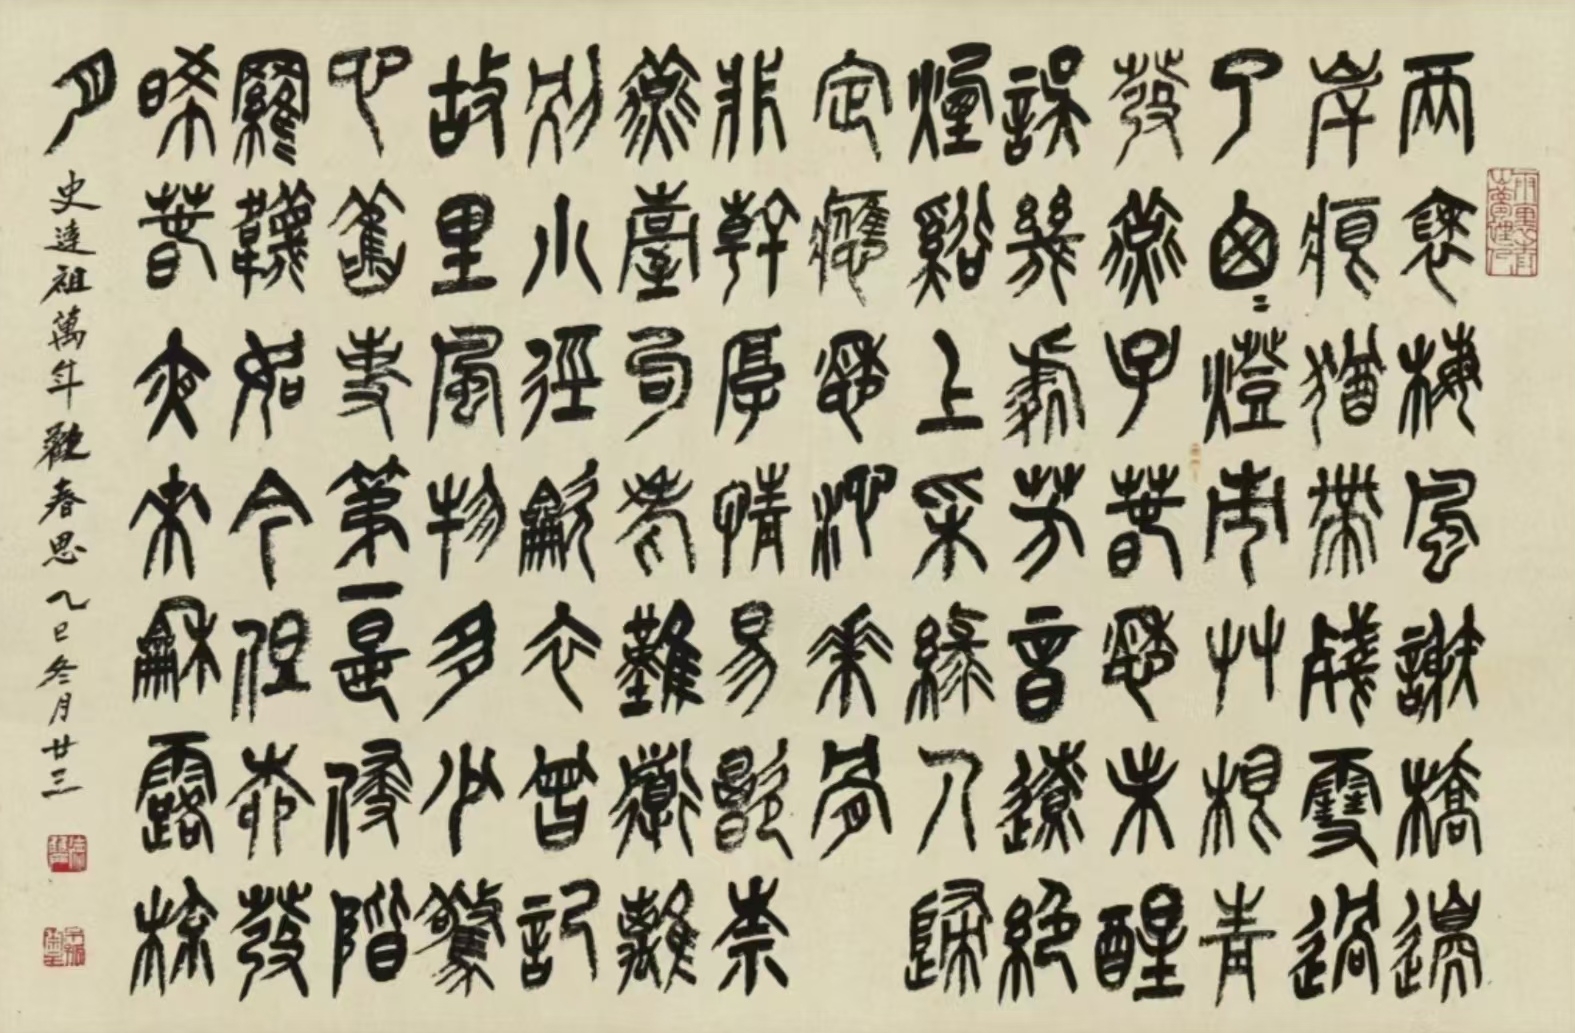 兩袖梅風謝橋邊
岸痕猶帶殘雪過
了匆=燈市艸根青
發燕子春愁未醒
誤幾處芳音遼絕
煙谿上采綠人歸
定應愁沁花骨
非幹厚情易歇柰
燕臺句老難道離
別小徑龡衣曾記
故里風物多少驚
心舊事第一是侵階
羅韈如今但柳發
晞春夜來龢露梳
月
史達祖萬年歡春思乙巳冬月廿三